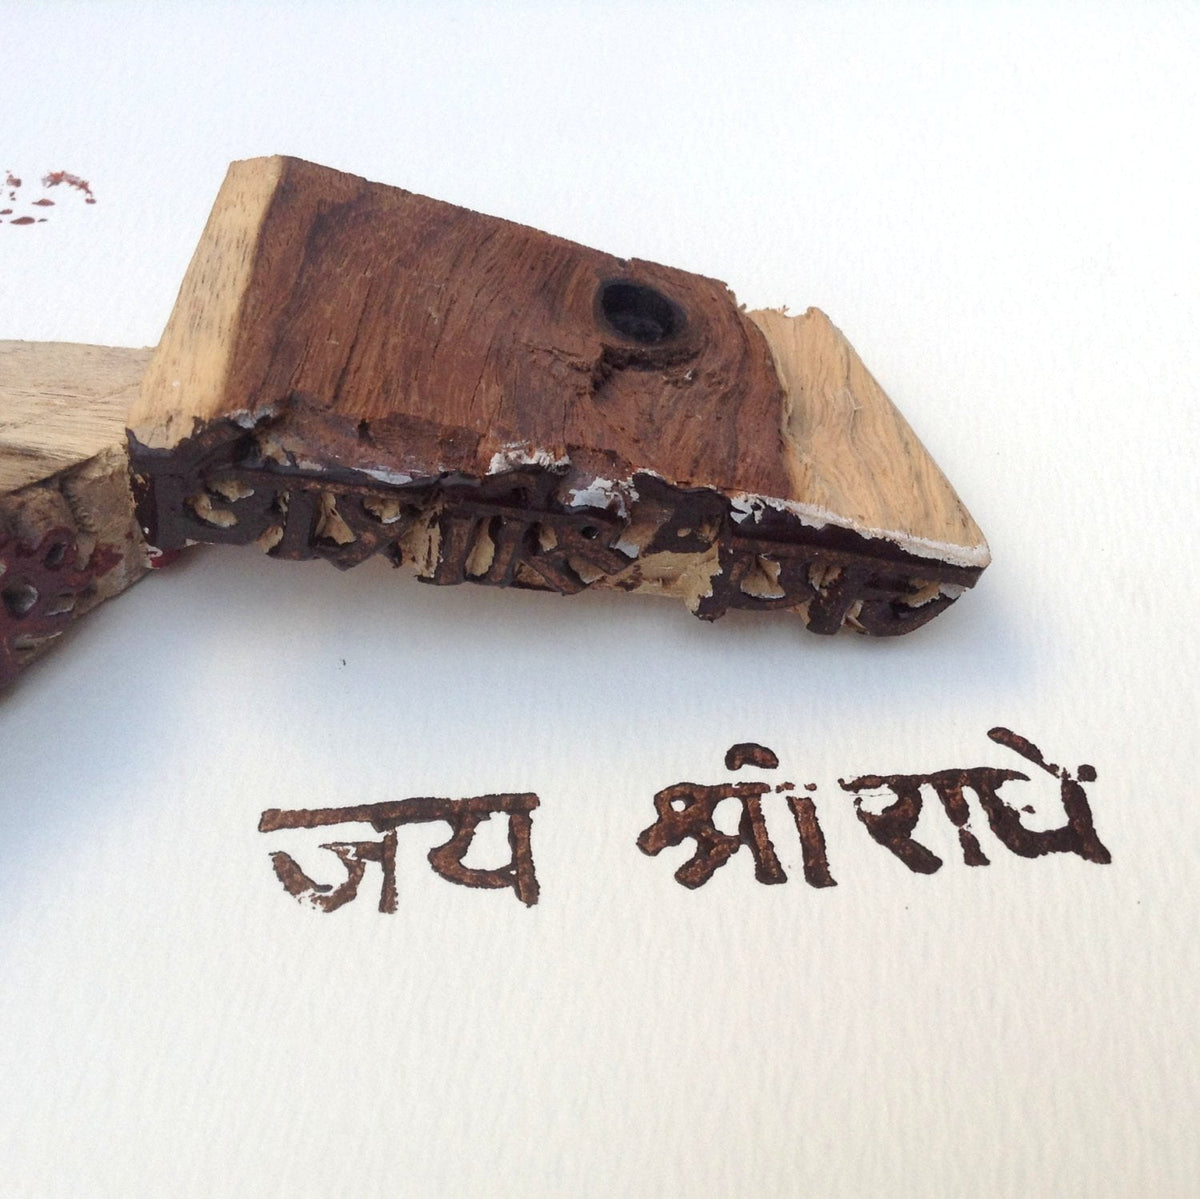 जय श्री राधे